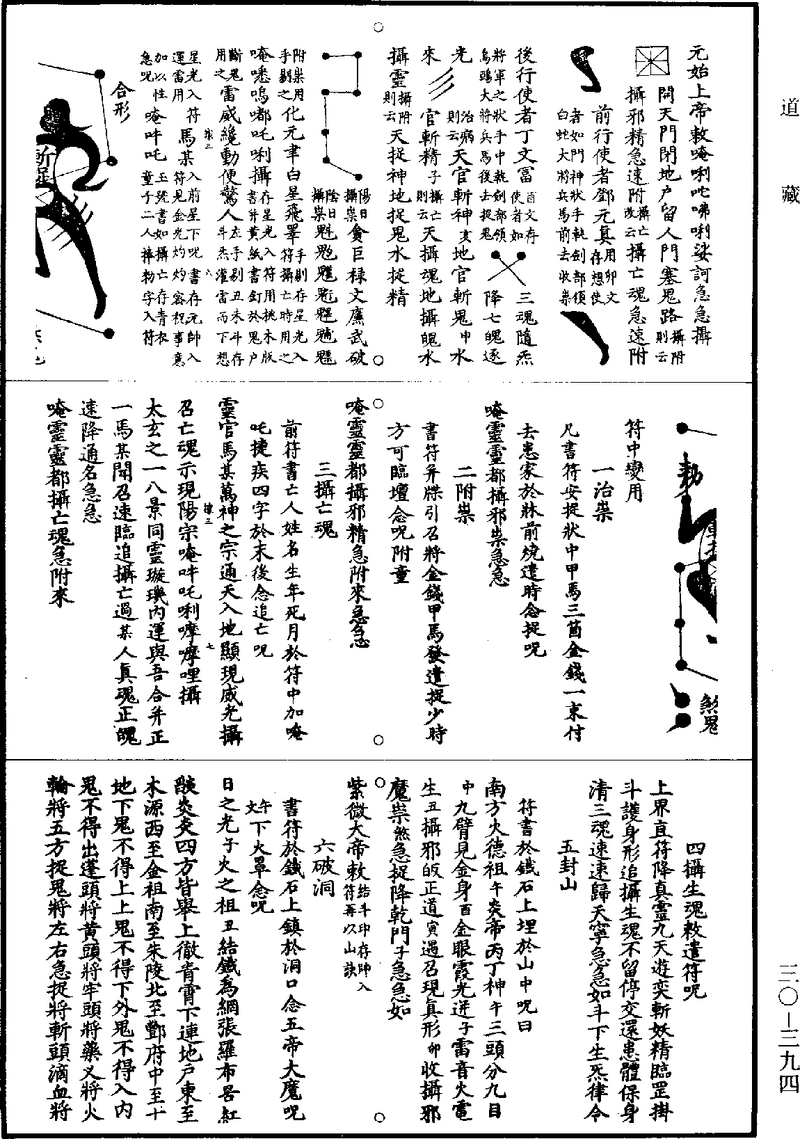 道藏
三〇—三九四
元始上帝敕唵唎咜㖿唎娑訶急急攝
閉天門閉地戶留人門塞鬼路攝附則云
攝邪精急速附攝亡改云攝亡魂急速附
前行使者鄧元真用卯文存想使
者如門神狀手執劍部領
白蛇大將兵馬前去收祟
後行使者丁文冨酉文存使者如
將軍之狀手中執劍部領
烏鴉大將兵馬後去捉鬼
三魂隨炁
降七魄逐
光治病則云天官斬神亥地官斬鬼申水
來官斬精子攝亡則云天攝魂地攝魄水
攝靈攝附則云天捉神地捉鬼水捉精
陽日攝祟貪巨祿文廉武破
陰日攝祟魁
附祟用手剔之化元聿白星飛畢手剔存星光入符攝亡時用之
唵㗭嗚嘟吒唎攝存星光入符用桃木版書并黃紙書釘於鬼戶
斷鬼用之雷威纔動便驚人左手剔丑未斗存斗炁灌雷而下想
星光入符馬某訣二入前星下呪書存元帥入符見金光灼灼容祝事意
運雷用加以性急呪唵吽吒玉號書如攝亡存青衣童子二人捧勑字入符
合形
斬
勑
煞鬼
符中變用
一治祟
凡書符安捉狀中甲馬三箇金錢一束付
去患家於牀前燒遣時念捉呪
唵靈靈都攝邪祟急急
二附祟
書符并牒引召將金錢甲馬發遣捉少時
方可臨壇念呪附童
唵靈靈都攝邪精急附來急急
三攝亡魂
前符書亡人姓名生年死月於符中加唵
吒捷疾四字於末後念追亡呪
靈官馬某萬神之宗通天入地顯現威光攝
召亡魂示現陽宗唵吽吒唎摩摩哩攝
太玄之一八景同靈璇璣內運與吾合并正
一馬某聞召速臨追攝亡過某人真魂正魄
速降通名急急
唵靈靈都攝亡魂急附來
四攝生魂敕遣符呪
上界直符降真靈九天遊奕斬妖精臨罡掛
斗護身形追攝生魂不留停交還患體保身
清三魂速速歸天寧急急如斗下生炁律令
五封山
符書於鐵石上埋於山中呪曰
南方火德祖午炎帝丙丁神午三頭分九目
中九臂見金身百金眼霞光迸子雷音火電
生丑攝邪皈正道寅過召現真形卯收攝邪
魔祟煞急捉降乾門子急急如
紫微大帝敕結斗印存帥入符再以山訣
六破洞
書符於鐵石上鎮於洞口念五帝大魔呪
午文下火罩念呪
日之光子火之祖丑結鐵為網張羅布罟紅
燄炎炎四方皆舉上徹青霄下連地戶東至
木源西至金祖南至朱陵北至酆府中至十
地下鬼不得上上鬼不得下外鬼不得入內
鬼不得出蓬頭將黃頭將牢頭將藥叉將火
輪將五方捉鬼將左右急捉將斬頭滴血將